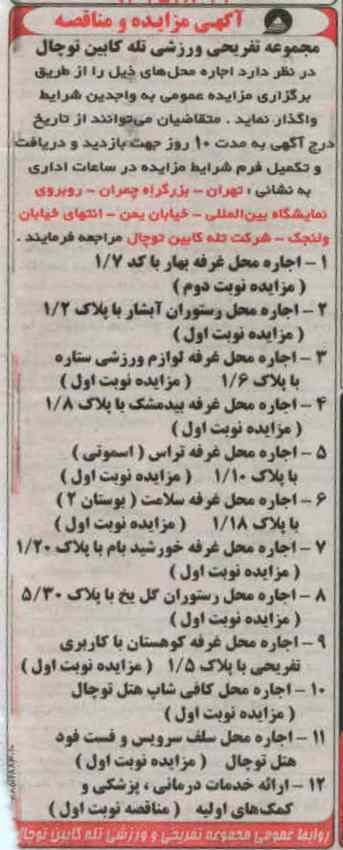 آگهی مزایده و مناقصه
مجموعه تفریحی ورزشی تله کابین توچال
در نظر دارد اجاره محل‌های ذیل را از طریق
برگزاری مزایده عمومی به واجدین شرایط
واگذار نماید . متقاضیان می‌توانند از تاریخ
درج آگهی به مدت ۱۰ روز جهت بازدید و دریافت
و تکمیل فرم شرایط مزایده در ساعات اداری
به نشانی : تهران - بزرگراه چمران - روبروی
نمایشگاه بین‌المللی - خیابان یمن - انتهای خیابان
ولنجک - شرکت تله کابین توچال مراجعه فرمایند .
۱ - اجاره محل غرفه بهار با کد ۱/۷
( مزایده نوبت دوم )
۲ - اجاره محل رستوران آبشار با پلاک ۱/۲
( مزایده نوبت اول )
۳ - اجاره محل غرفه لوازم ورزشی ستاره
با پلاک ۱/۶ ( مزایده نوبت اول )
۴ - اجاره محل غرفه بیدمشک با پلاک ۱/۸
( مزایده نوبت اول )
۵ - اجاره محل غرفه تراس ( اسموتی )
با پلاک ۱/۱۰ ( مزایده نوبت اول )
۶ - اجاره محل غرفه سلامت ( بوستان ۲ )
با پلاک ۱/۱۸ ( مزایده نوبت اول )
۷ - اجاره محل غرفه خورشید بام با پلاک ۱/۲۰
( مزایده نوبت اول )
۸ - اجاره محل رستوران گل یخ با پلاک ۵/۳۰
( مزایده نوبت اول )
۹ - اجاره محل غرفه کوهستان با کاربری
تفریحی با پلاک ۱/۵ ( مزایده نوبت اول )
۱۰ - اجاره محل کافی شاپ هتل توچال
( مزایده نوبت اول )
۱۱ - اجاره محل سلف سرویس و فست فود
هتل توچال ( مزایده نوبت اول )
۱۲ - ارائه خدمات درمانی ، پزشکی و
کمک‌های اولیه ( مناقصه نوبت اول )
روابط عمومی مجموعه تفریحی و ورزشی تله کابین توچال